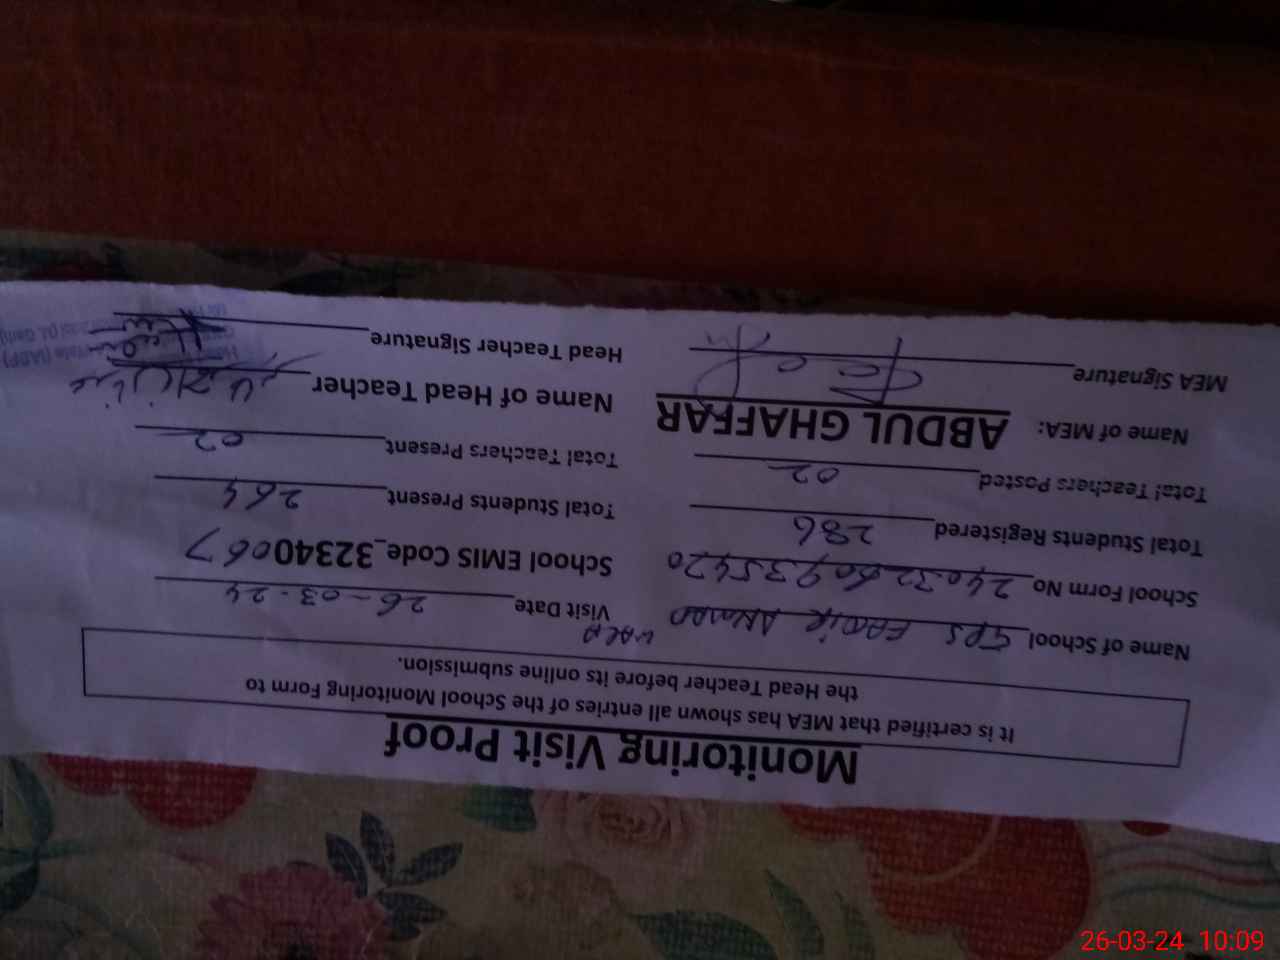 Monitoring Visit Proof
It is certified that MEA has shown all entries of the School Monitoring Form to
the Head Teacher before its online submission.
Name of School GPS WALA Visit Date 26-03-24
School Form No 24032609335420 School EMIS Code_32340067
Total Students Registered 286 Total Students Present 264
Total Teachers Posted 02 Total Teachers Present 02
Name of MEA: ABDUL GHAFFAR Name of Head Teacher
MEA Signature Head Teacher Signature
26-03-24 10:09